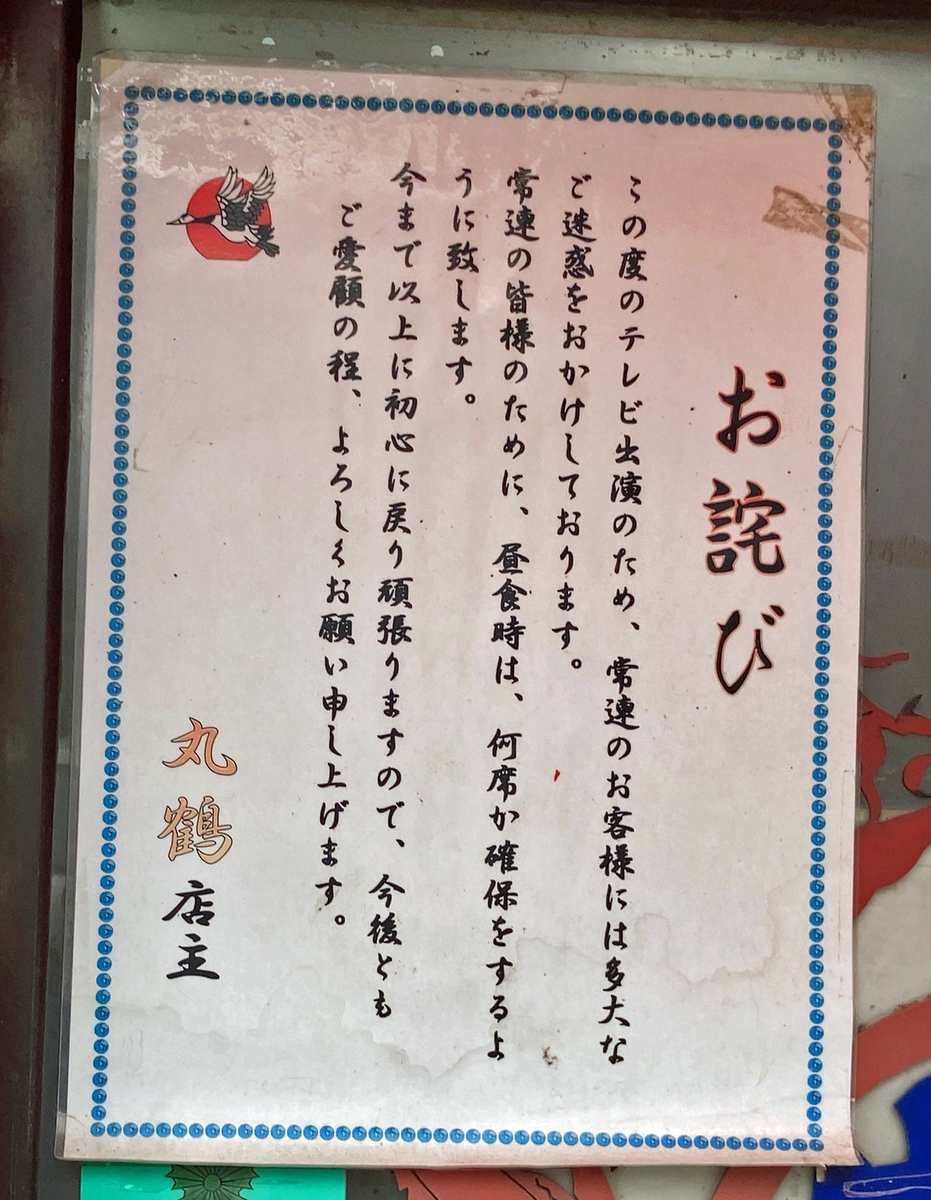 お詫び
この度のテレビ出演のため、常連のお客様には多大な
ご迷惑をおかけしております。
常連の皆様のために、昼食時は、何席か確保をするよ
うに致します。
今まで以上に初心に戻り頑張りますので、今後とも
ご愛顧の程、よろしくお願い申し上げます。
丸鶴店主